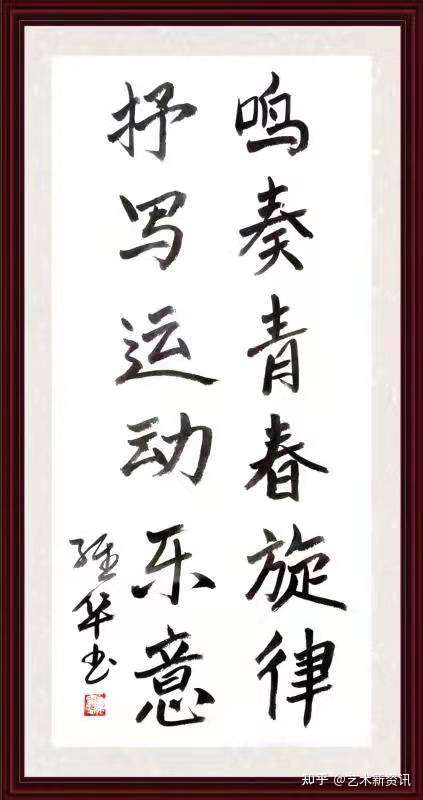 鸣奏青春旋律
抒写运动乐意
华书
知乎 @艺术新资讯